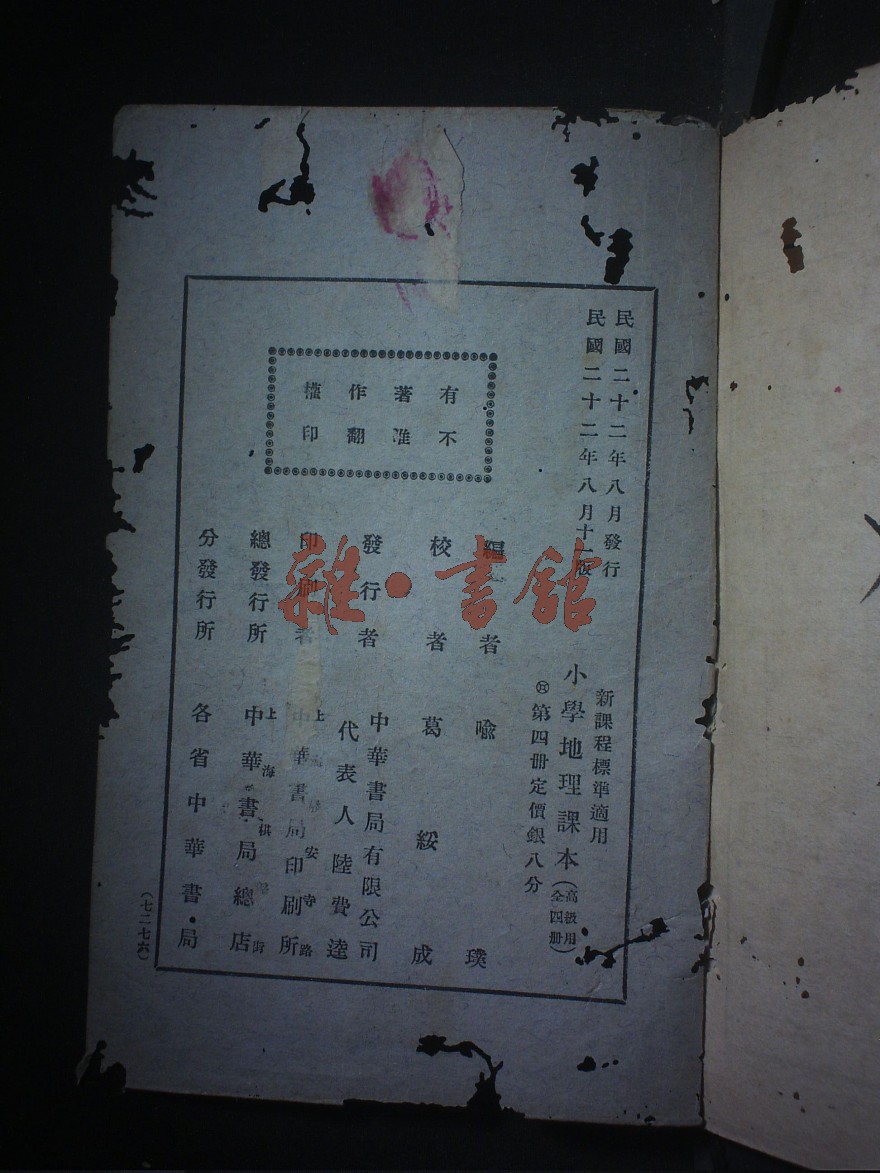 民國二十二年八月發行
民國二十二年八月十一版
新課程標準適用
小學地理課本(高級用全四冊)
第四冊定價銀八分
編者 喩璞
校者 葛綏成
發行者 中華書局有限公司
代表人 陸費逵
印刷者 上 安寺路
中華書局印刷所
總發行所 上海棋 街
中華書局總店
分發行所 各省中華書局
有不
著准
作翻
權印
(七二七六)
雜·書館